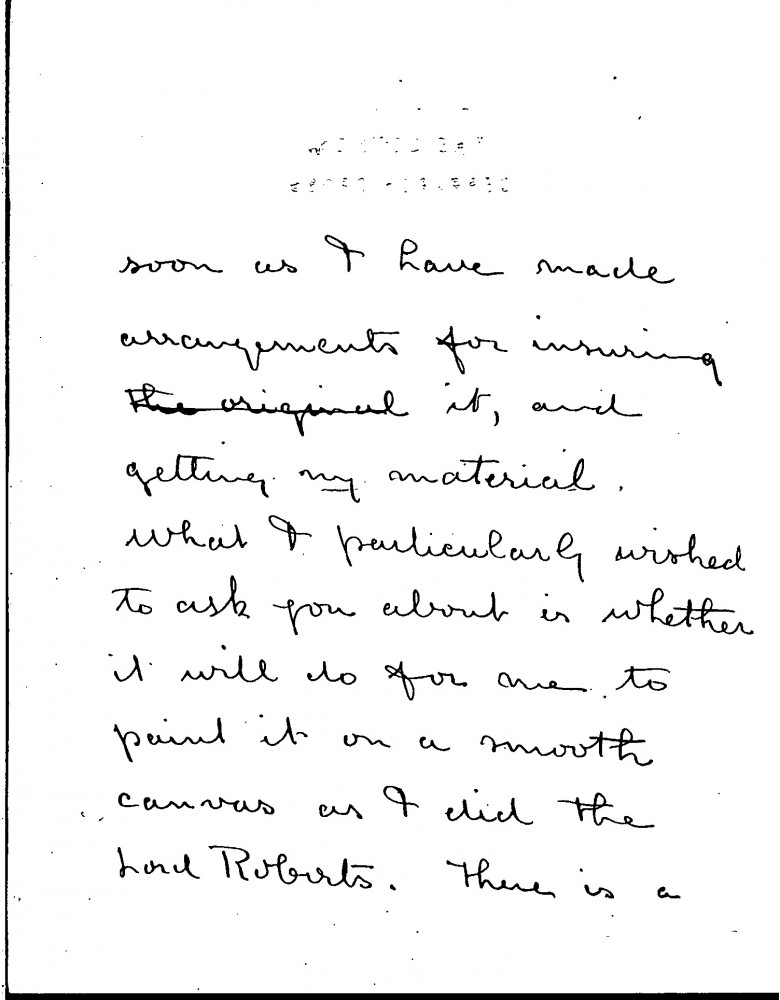 soon as I have made
arrangements for insuring
~~the original~~ it, and
getting my material.
What I particularly wished
to ask you about is whether
it will do for me to
paint it on a smooth
canvas as I did the
Lord Roberts. There is a